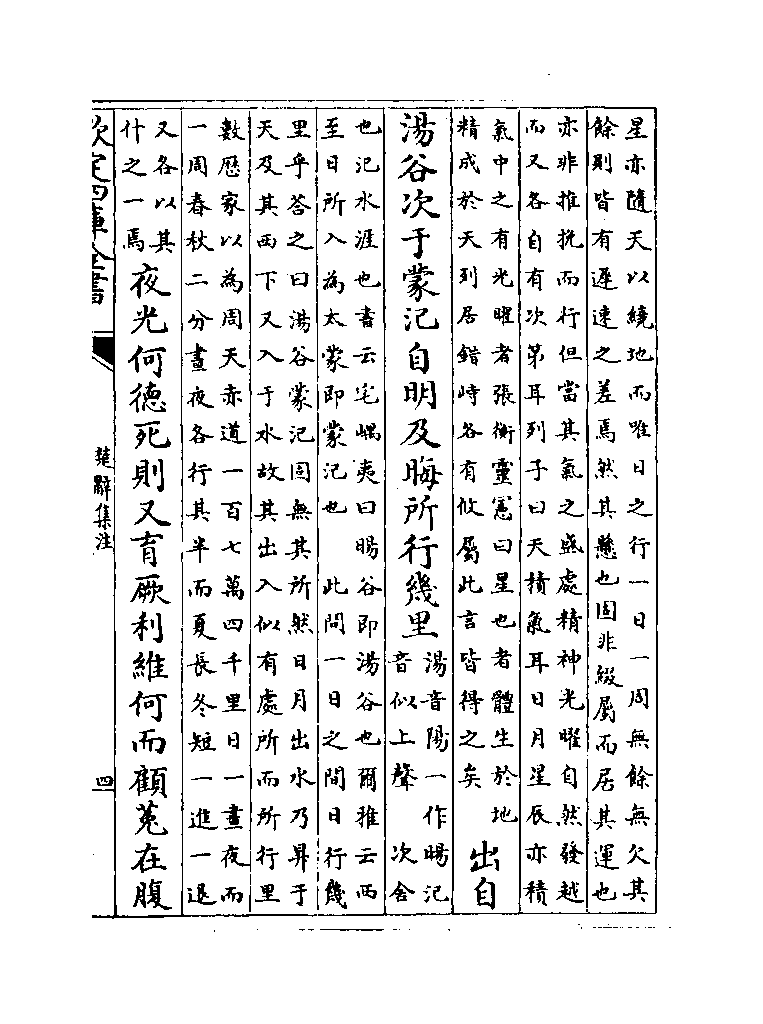 星亦隨天以繞地而唯日之行一日一周無餘無欠其
餘則皆有遲速之差焉然其懸也固非綴屬而居其運也
亦非推挽而行但當其氣之盛處精神光曜自然發越
而又各自有次第耳列子曰天積氣耳日月星辰亦積
氣中之有光曜者張衡靈憲曰星也者體生於地
精成於天列居錯峙各有攸屬此言皆得之矣
出自
湯谷次于蒙汜自明及晦所行幾里
湯音陽一作暘汜
音似上聲 次舍
也汜水涯也書云宅嵎夷曰暘谷即湯谷也爾雅云西
至日所入為太蒙即蒙汜也 此問一日之間日行幾
里乎荅之曰湯谷蒙汜固無其所然日月出水乃昇于
天及其西下又入于水故其出入似有處所而所行里
數歴家以為周天赤道一百七萬四千里日一晝夜而
一周春秋二分晝夜各行其半而夏長冬短一進一退
又各以其
什之一焉
夜光何德死則又育厥利維何而顧菟在腹
欽定四庫全書
楚辭集注
四